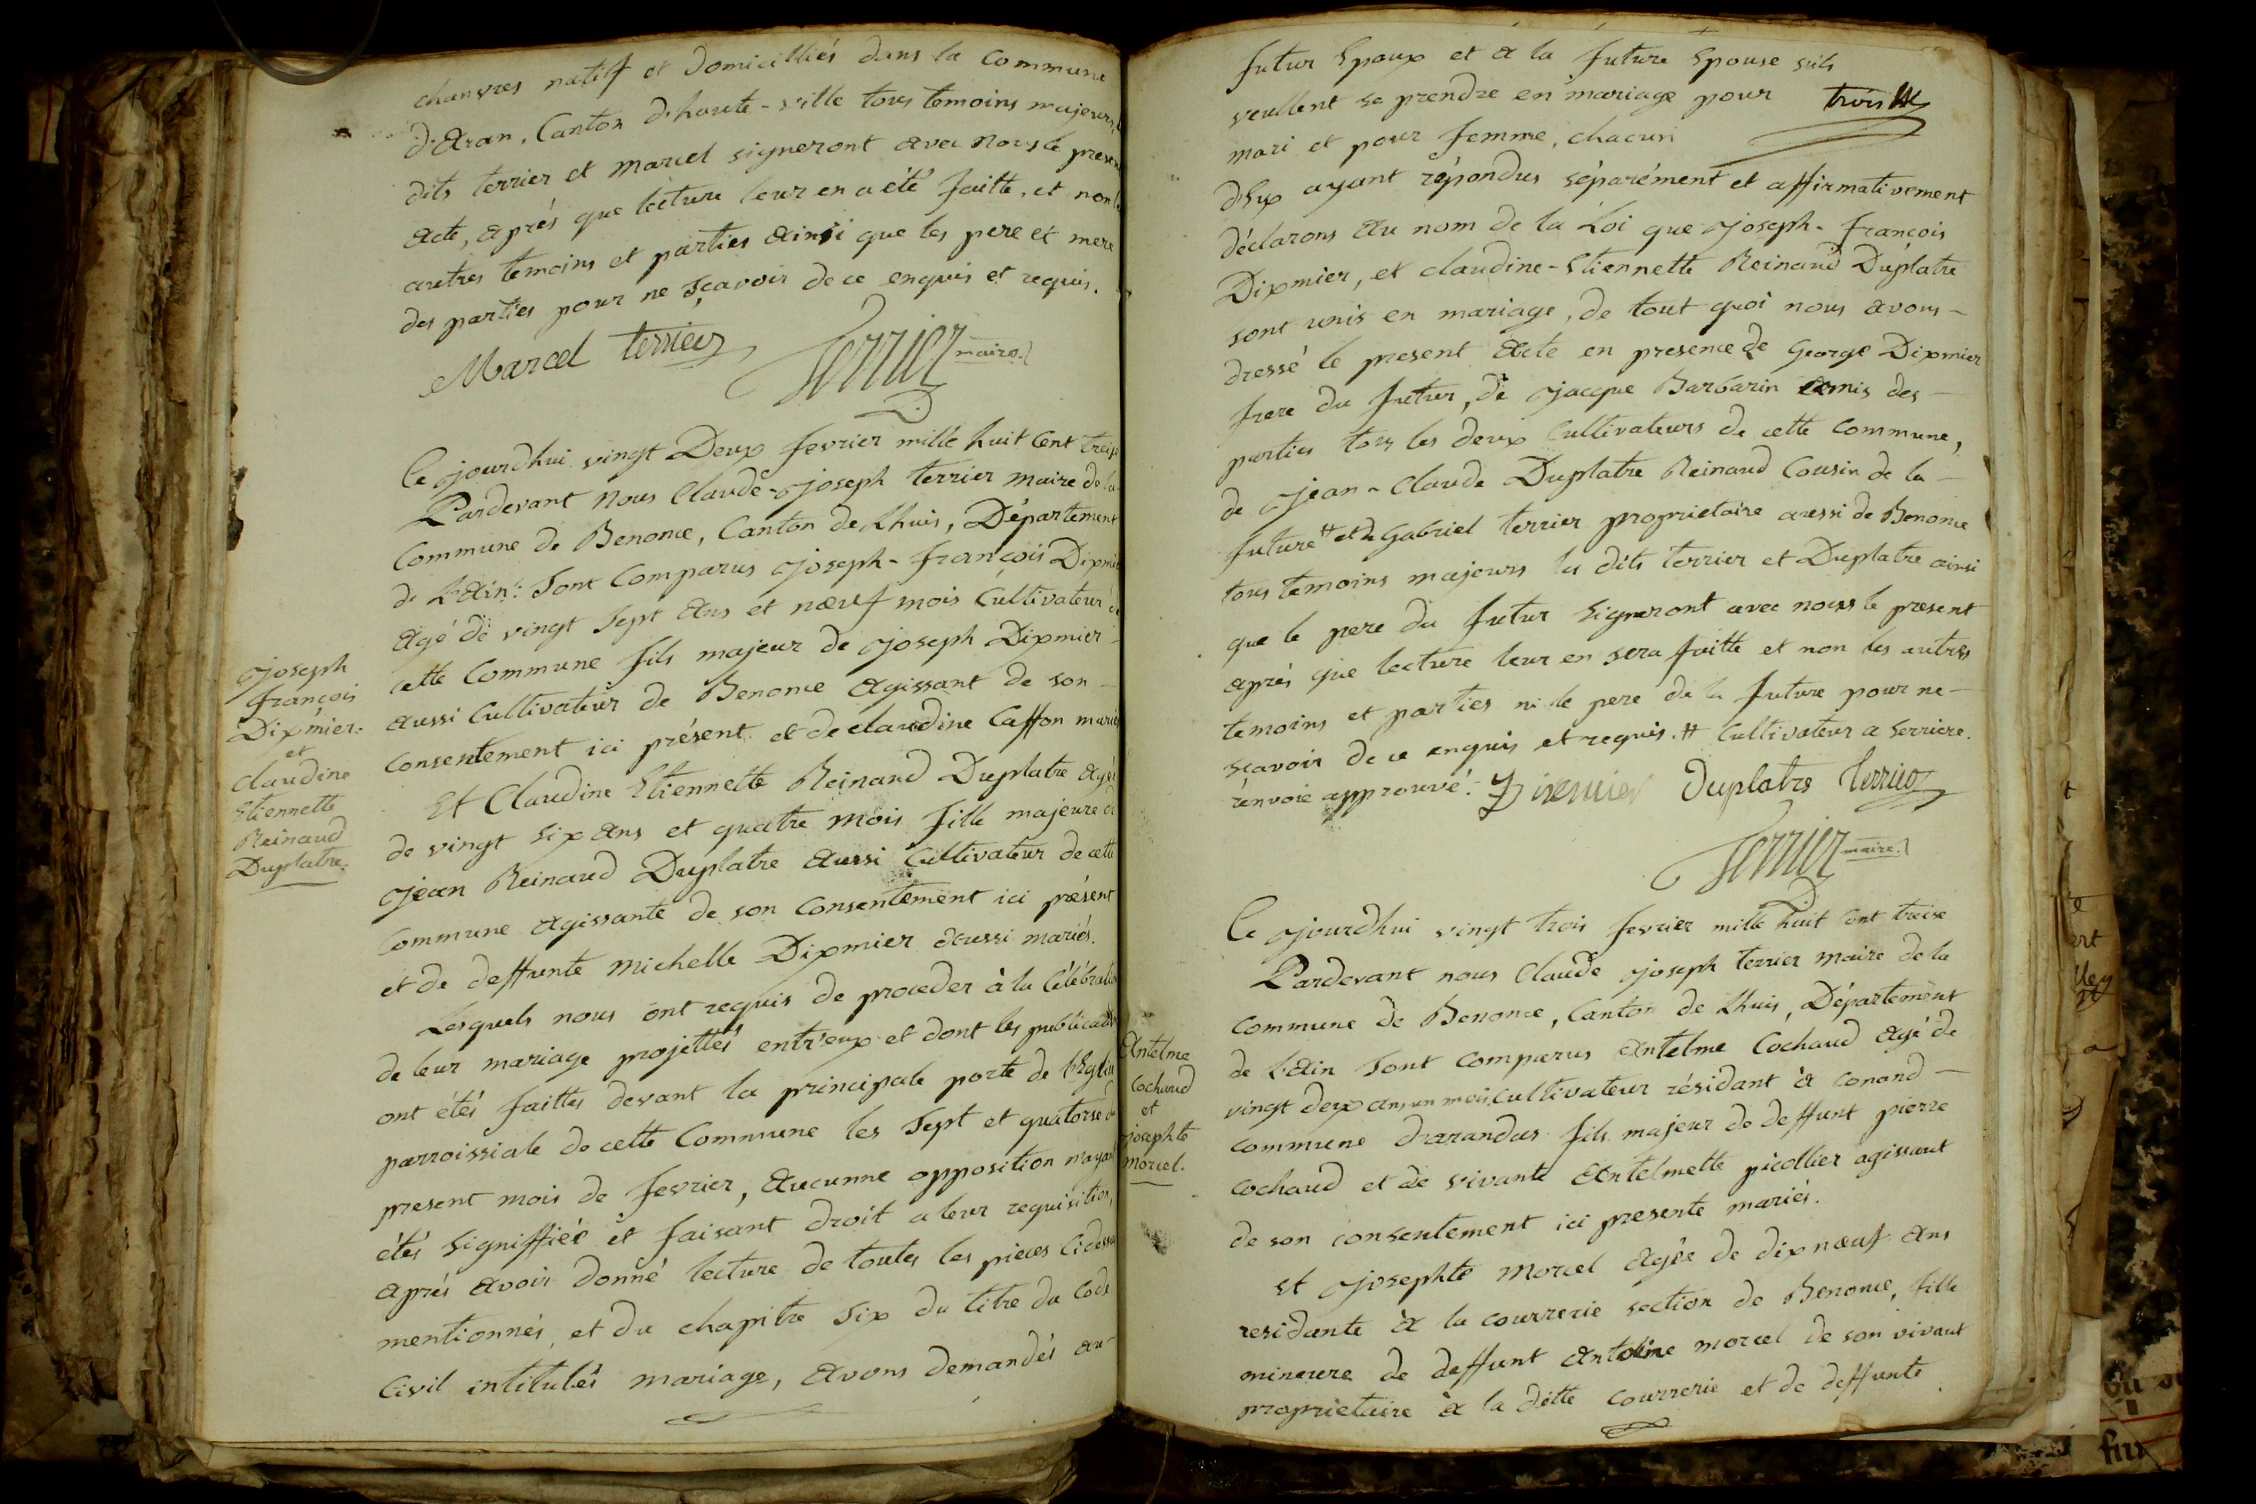 chanvres natif et Domicilliés dans la Commune
d'Aran, Canton d'haute-ville tous temoins majeurs,
dits terrier et marcel signeront avec nous le present
acte, après que lecture leur en a été faitte, et non
autres temoins et parties ainsi que les pere et mere
des parties pour ne sçavoir de ce enquis et requis.
Marcel terrier Terrier maire.
Joseph
françois
Dixmier.
et
claudine
Etiennette
Reinaud
Duplatre.
Ce jourdhui vingt Deux fevrier mille huit Cent treise
Pardevant Nous Claude-Joseph terrier maire de la
Commune de Benonce, Canton de Lhuis, Département
de L'Ain: sont Comparus Joseph-françois Dixmier
Agé de vingt sept Ans et nœuf mois Cultivateur de
cette Commune fils majeur de Joseph Dixmier
aussi Cultivateur de Benonce Agissant de son
Consentement ici présent et de claudine Caffon mariés
Et Claudine Etiennette Reinaud Duplatre agée
de vingt six Ans et quatre mois fille majeure de
Jean Reinaud Duplatre Aussi Cultivateur de cette
Commune agissante de son Consentement ici présent
et de deffunte michelle Dixmier aussi mariés.
Lesquels nous ont requis de proceder à la Célébration
de leur mariage projettés entr'eux et dont les publications
ont étés faittes devant la principale porte de l'Eglise
parroissiale de cette Commune les sept et quatorse du
present mois de fevrier, Aucunne opposition n'ayant
étés signiffiée et faisant droit a leur requisition,
après Avoir donné lecture de toutes les pieces Cidessus
mentionnés, et du chapitre six du titre du Code
Civil intitulés mariage, Avons demandés au
futur Epoux et à la future Epouse s'ils
veullent se prendre en mariage pour
mari et pour femme, chacun
d'Eux ayant répondus séparément et affirmativement
déclarons Au nom de la Loi que Joseph-françois
Dixmier, et claudine-Etiennette Reinaud Duplatre
sont unis en mariage, de tout quoi nous avons
dressé le present Acte en presence de George Dixmier
frere du futur, de Jacque Barbarin Amis des
parties tous les deux Cultivateurs de cette Commune,
de Jean-Claude Duplatre Reinaud Cousin de la
future # et de Gabriel terrier proprietaire aussi de Benonce
tous temoins majeurs les dits terrier et Duplatre ainsi
que le pere du futur signeront avec nous le present
après que lecture leur en sera faitte et non les autres
temoins et parties ni le pere de la future pour ne
sçavoir de ce enquis et requis. # Cultivateur a serriere.
renvoie approuvé. Dixmier Duplatre terrier
Terrier maire.
Antelme
Cochaud
et
Josephte
morcel.
Ce jourdhui vingt trois fevrier mille huit Cent treise
Pardevant nous Claude Joseph terrier maire de la
Commune de Benonce, Canton de Lhuis, Département
de L'Ain sont comparus Antelme Cochaud Agé de
vingt deux ans un mois Cultivateur résidant à Conand
Commune d'arandas fils majeur de deffunt pierre
Cochaud et de vivante Antelmette picollier agissant
de son consentement ici presente mariés.
Et Josephte morcel Agée de dix nœuf Ans
residante à la courrerie section de Benonce, fille
mineure de deffunt Antoine morcel de son vivant
proprietaire à la ditte courrerie et de deffunte